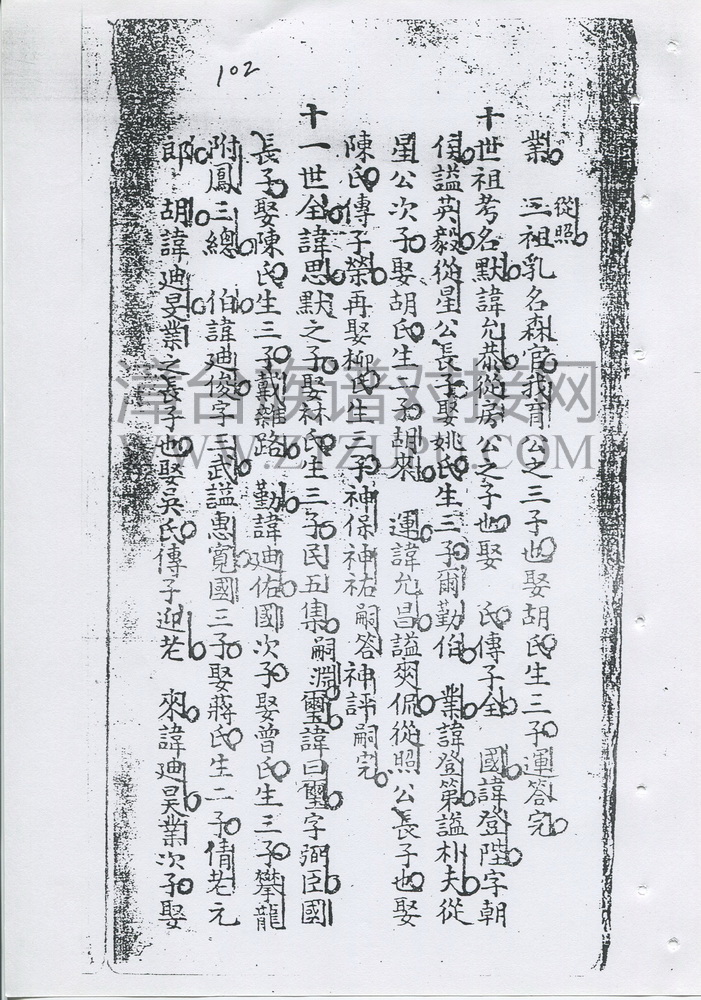 102
業 從照 三祖乳名森官我育公之三子也娶胡氏生三子運答完
十世祖考名默諱允恭從房公之子也娶 氏傳子全 國諱登陞字朝
侯謚英毅從星公長子娶姚氏生三子爾勤伯 業諱登第謚朴夫從
星公次子娶胡氏生二子胡來 運諱允昌謚爽侃從照公長子也娶
陳氏傳子榮再娶柳氏生三子神保神祐嗣答神評嗣完
十一世全諱思默之子娶林氏生三子民五集嗣淵璽諱曰璽字弼臣國
長子娶陳氏生三子戴雜路 勤諱廸佑國次子娶曾氏生三子攀龍
附鳳三總 伯諱廸俊字三武謚惠寬國三子娶蔣氏生二子倩老元
郎 胡諱廸旻業之長子也娶吳氏傳子迎老 來諱廸昊業次子娶
漳台族谱对接网
WWW.ZTZUPU.COM